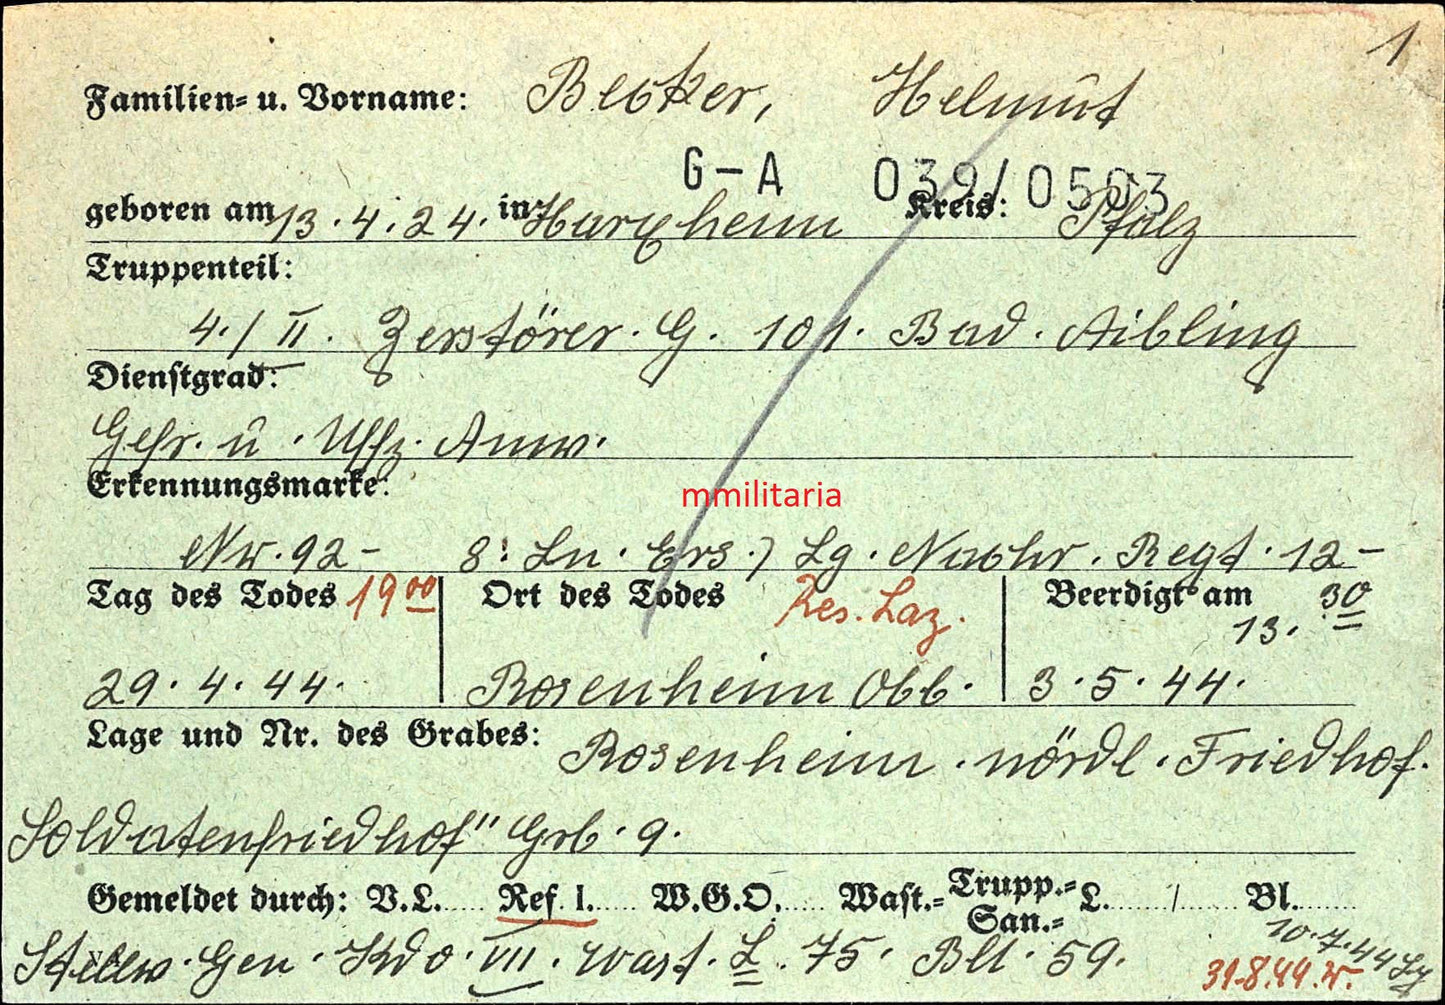 1
Familien- u. Vorname: Becker, Helmut
G-A 039/0503
geboren am 13.4.24. in Harxheim Kreis: Pfalz
Truppenteil:
4./II. Zerstörer. G. 101. Bad. Aibling
Dienstgrad:
Gefr. u. Uffz. Anw.
Erkennungsmarke:
mmilitaria
Nr. 92 - 8. Ln. Ers.) Lg. Nachr. Regt. 12 -
Tag des Todes 19 00 Ort des Todes Res. Laz. Beerdigt am 13. 30
29. 4. 44. Rosenheim Obb. 3. 5. 44.
Lage und Nr. des Grabes: Rosenheim. nördl. Friedhof.
Soldatenfriedhof" Grb. 9.
Gemeldet durch: V.L. Ref. I. W.G.O. Wast.= Trupp.= San.= L. / Bl.
Stellv. Gen. Kdo. VII. Wast. L. 75. Bll. 59.
10.7.44
31.8.44.